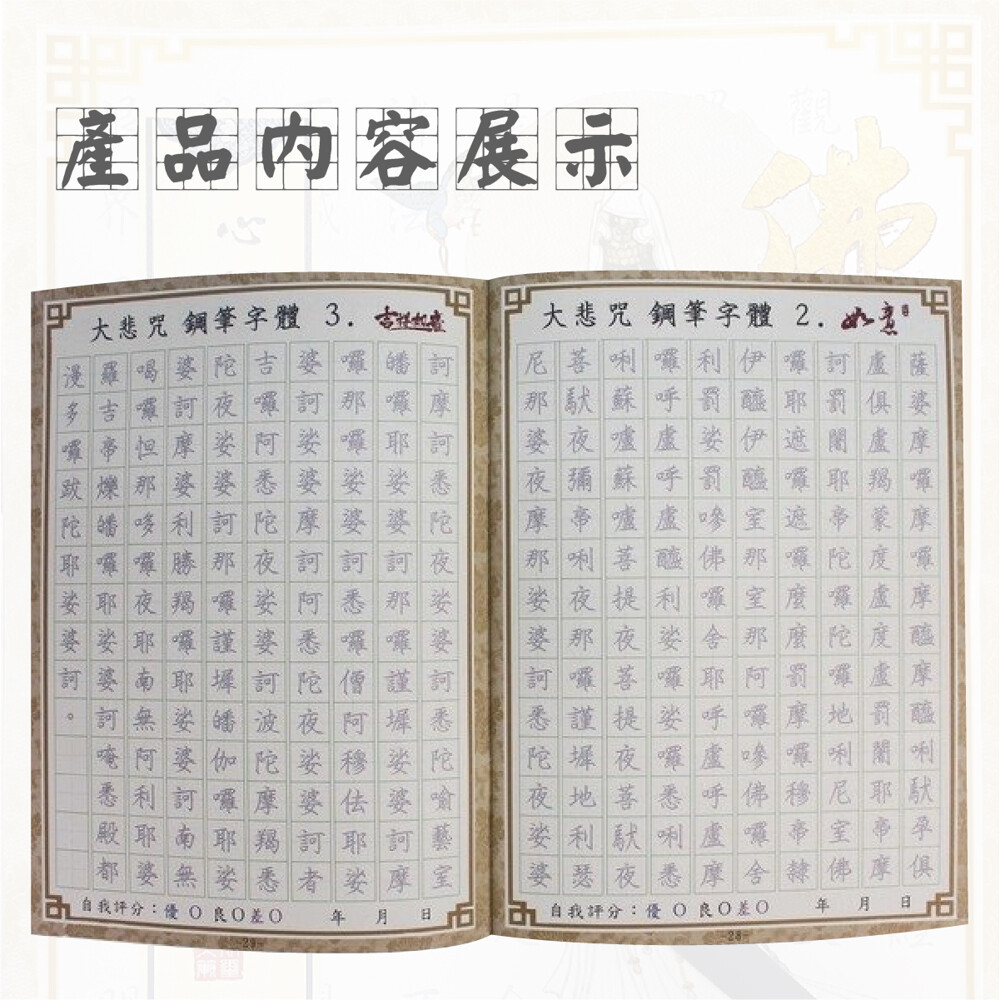 產品內容展示
佛
觀
心
大悲咒 鋼筆字體 2. 如意
薩婆摩囉摩囉摩醯摩醯唎馱孕俱
盧俱盧羯蒙度盧度盧罰闍耶帝摩
訶罰闍耶帝陀囉陀囉地唎尼室佛
囉耶遮囉遮囉麼麼罰摩囉穆帝隸
伊醯伊醯室那室那阿囉嘇佛囉舍
利罰娑罰嘇佛囉舍耶呼盧呼盧摩
囉呼盧呼盧醯利娑囉娑囉悉唎悉
唎蘇嚧蘇嚧菩提夜菩提夜菩馱夜
菩馱夜彌帝唎夜那囉謹墀地利瑟
尼那婆夜摩那娑婆訶悉陀夜娑婆
自我評分:優 〇 良〇差〇 年 月 日
-28-
大悲咒 鋼筆字體 3. 吉祥如意
訶摩訶悉陀夜娑婆訶悉陀喻藝室
皤囉耶娑婆訶那囉謹墀娑婆訶摩
囉那囉娑婆訶悉囉僧阿穆佉耶娑
婆訶娑婆摩訶阿悉陀夜娑婆訶者
吉囉阿悉陀夜娑婆訶波陀摩羯悉
陀夜娑婆訶那囉謹墀皤伽囉耶娑
婆訶摩婆利勝羯囉耶娑婆訶南無
喝囉怛那哆囉夜耶南無阿利耶婆
羅吉帝爍皤囉耶娑婆訶唵悉殿都
漫多囉跋陀耶娑婆訶。
自我評分:優 〇 良〇差〇 年 月 日
-29-